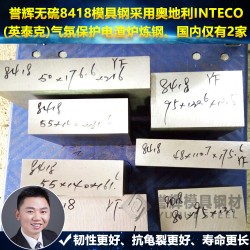 誉辉无硫8418模具钢采用奥地利INTECO
(英泰克)气氛保护电渣炉炼钢，国内仅有2家
8418
50×176.6×216
YF
8418
55×
8418
YF
95×
8418
68×110.7×175.6
YF
8418
55×140×161.6
YF
8418
8418
YF
模具钢材
✓韧性更好、抗龟裂更好、寿命更长